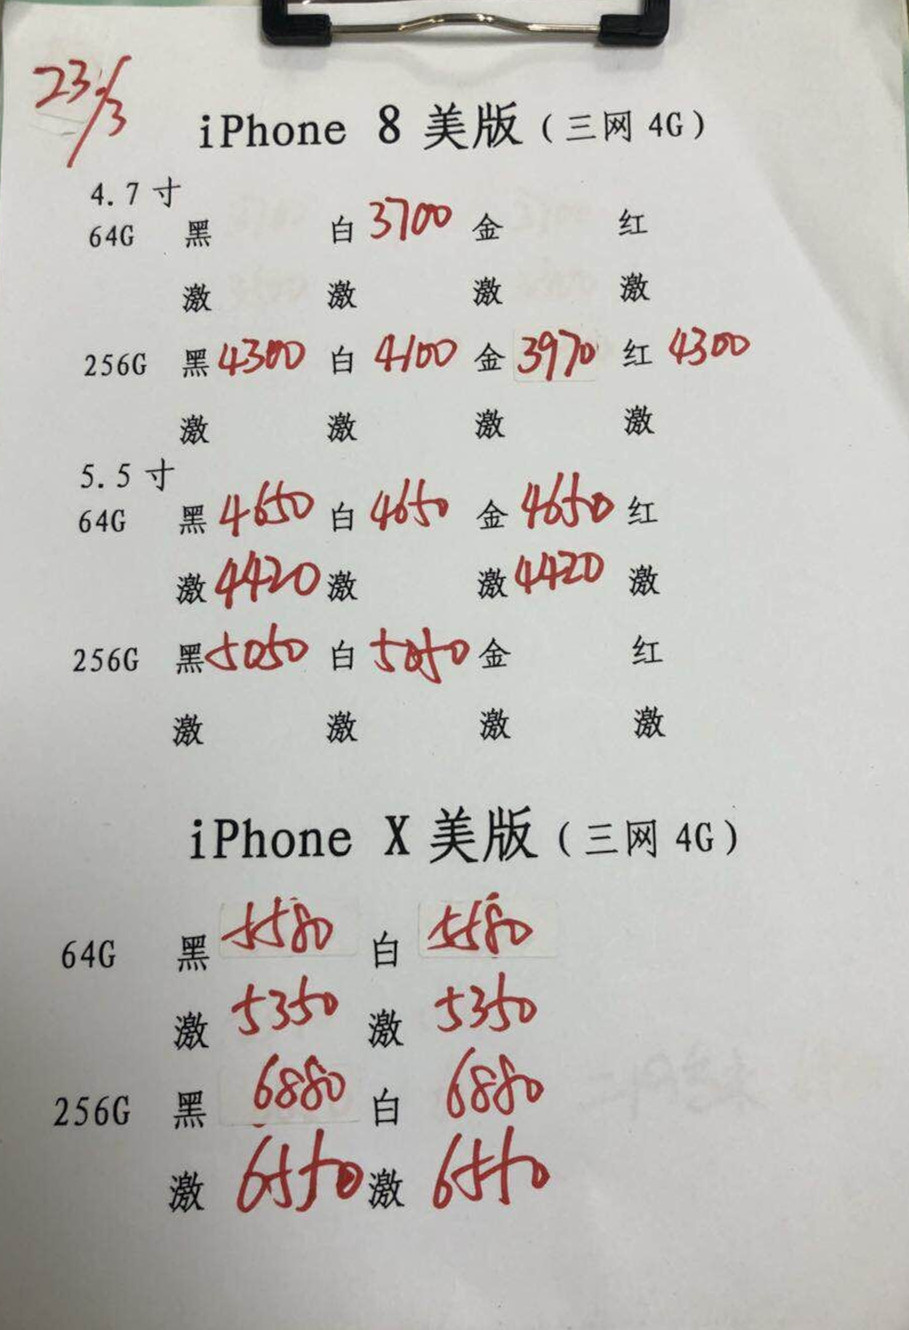 23/3
iPhone 8 美版 (三网 4G)
4.7 寸
64G 黑 白 3700 金 红
激 激 激 激
256G 黑 4300 白 4100 金 3970 红 4300
激 激 激 激
5.5 寸
64G 黑 4650 白 4650 金 4650 红
激 4420 激 激 4420 激
256G 黑 5050 白 5050 金 红
激 激 激 激
iPhone X 美版 (三网 4G)
64G 黑 5580 白 5580
激 5350 激 5350
256G 黑 6880 白 6880
激 6550 激 6550